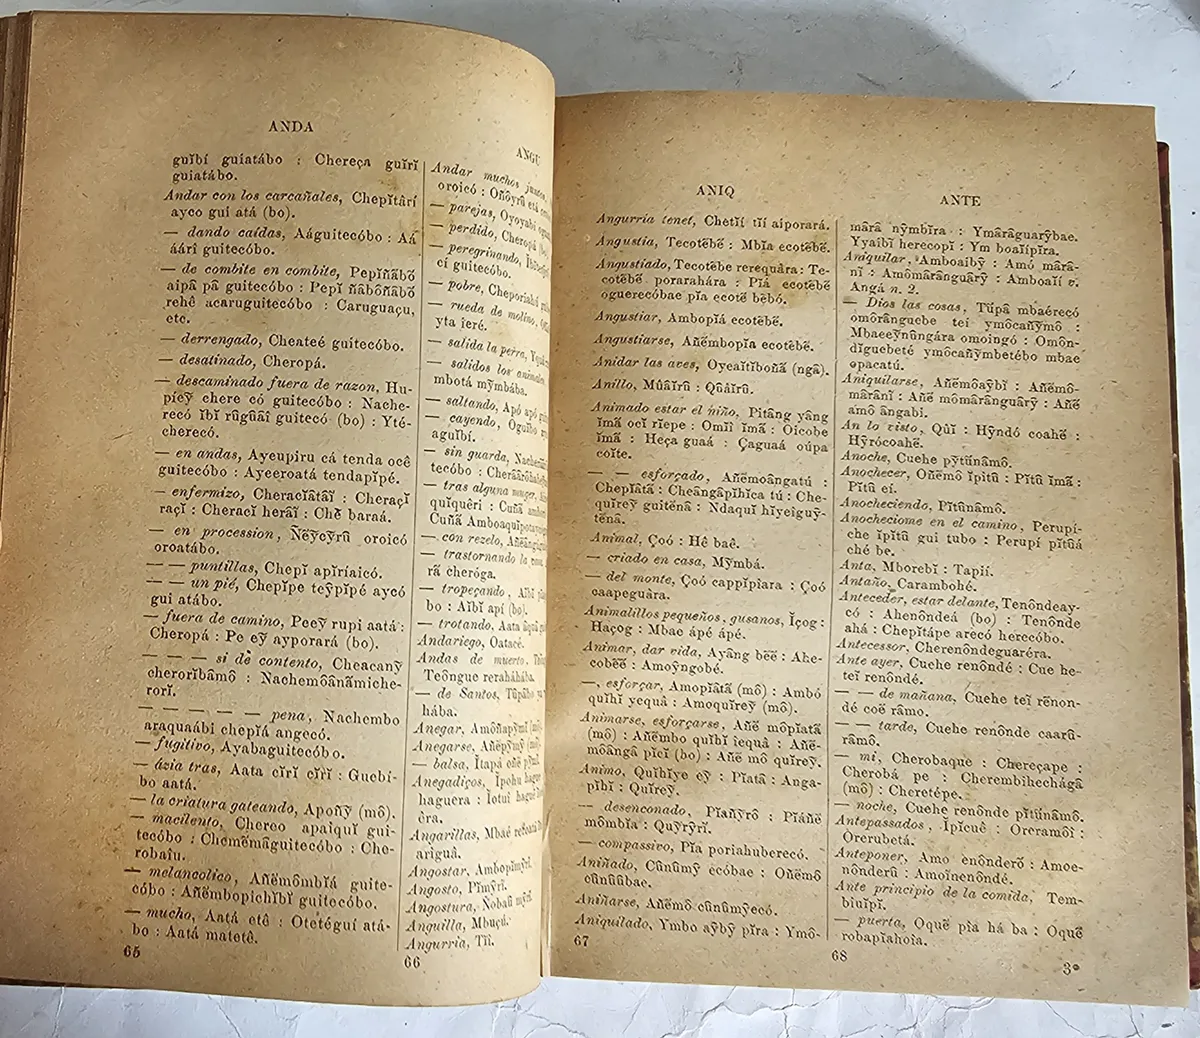 ANDA
guĭbí guíatábo : Chereça guĭrĭ
guiatábo.
Andar con los carcañales, Chepĭtârí
ayco guí atá (bo).
— dando caídas, Aáguitecóbo : Aá
áári guitecóbo.
— de combite en combite, Pepĭñãbõ
aipâ pâ guitecóbo : Pepĭ ñãbôñãbõ
rehê acaruguitecóbo : Caruguaçu,
etc.
— derrengado, Cheateé guitecóbo.
— desatinado, Cheropá.
— descaminado fuera de razon, Hu-
pícy̆ chere có guitecóbo : Nache-
recó ĭbĭ rûgûâĭ guitecó (bo) : Yté-
cherecó.
— en andas, Ayeupiru cá tenda ocê
guitecóbo : Ayeeroatá tendapĭpé.
— enfermizo, Cheracĭâtâĭ : Cheraçĭ
raçĭ : Cheracĭ herâĭ : Chĕ baraá.
— en procession, Ñĕy̆cy̆rû oroicó
oroatábo.
— — puntillas, Chepĭ apĭríaicó.
— — un pié, Chepĭpe tey̆pĭpé aycó
gui atábo.
— fuera de camino, Peey̆ rupi aatá :
Cheropá : Pe ey̆ ayporará (bo).
— — — si de contento, Cheacany̆
cherorĭbâmô : Nachemôânãmiche-
rorĭ.
— — — — — pena, Nachembo
araquaábi chepĭá angecó.
— fugitivo, Ayabaguitecóbo.
— ázia tras, Aata cĭrĭ cĭrĭ : Guebí-
bo aatá.
— la criatura gateando, Apoñy̆ (mô).
— macilento, Chereo apaiquĭ gui-
tecóbo : Chemĕmãguitecóbo : Che-
robaĭu.
— melancolico, Añĕmômbĭá guite-
cóbo : Añĕmbopichĭbĭ guitecóbo.
— mucho, Aatá etê : Otetéguí atá-
bo : Aatá matetê.
65
ANGU
Andar muchos juntos,
oroicó : Oñôyrû etá
— parejas, Oyoyabí
— perdido, Cheropá (bo)
— peregrinando,
cí guitecóbo.
— pobre, Cheporiahú
— rueda de molino,
yta ieré.
— salida la perra,
— salidos los animales,
mbotá my̆mbába.
— saltando, Apó apó
— cayendo, Oguĭbo
aguĭbí.
— sin guarda,
tecóbo :
— tras alguna muger,
quĭquêri : Cuñã
Cuñã
— con rezelo,
— trastornando la casa,
rã cheróga.
— tropeçando, Aĭbĭ
bo : Aĭbĭ apí (bo).
— trotando, Aata
Andariego, Oatacé.
Andas de muerto,
Teôngue reraháhába.
— de Santos, Tûpâbo
hába.
Anegar, Amôñapy̆mĭ
Anegarse, Añĕpy̆my̆
— balsa, Ĭtapá oñĕ
Anegadiços, Ĭpohu
haguera : Ĭotuĭ
êra.
Angarillas, Mbaé
ariguâ.
Angostar, Ambopĭmy̆rĭ.
Angosto, Pĭmy̆rĭ.
Angostura, Ñobaû
Anguilla, Mbuçú.
Angurria, Tĭĭ.
66
ANIQ
Angurria tenet, Chetĭí tĭí aíporará.
Angustia, Tecotĕbĕ : Mbĭa ecotĕbĕ.
Angustiado, Tecotĕbe rerequâra : Te-
cotĕbĕ porarahára : Pĭá ecotĕbĕ
oguerecóbae pĭa ecotĕ bĕbó.
Angustiar, Ambopĭá ecotĕbĕ.
Angustiarse, Añĕmbopĭa ecotĕbĕ.
Anidar las aves, Oyeaĭtĭboñã (ngâ).
Anillo, Mûâĭrû : Qûâĭrû.
Animado estar el niño, Pitâng yâng
ĭmã ocĭ rĭepe : Omiĭ ĭmã : Oicobe
ĭmã : Heça guaá : Çaguaá oúpa
coĭte.
— — esforçado, Añĕmoângatú :
Chepĭâtã : Cheângâpĭhĭca tú : Che-
quĭrey̆ guitĕnâ : Ndaquĭ hĭyeĭguy̆-
tĕnâ.
Animal, Çoó : Hê baê.
— criado en casa, My̆mbá.
— del monte, Çoó cappĭpĭara : Çoó
caapeguâra.
Animalillos pequeños, gusanos, Ĭçog :
Haçog : Mbae ápé ápé.
Animar, dar vida, Ayâng bĕĕ : Ahe-
cobĕĕ : Amoy̆ngobé.
—, esforçar, Amopĭâtã (mô) : Ambó
quĭhĭ yequâ : Amoquĭrey̆ (mô).
Animarse, esforçarse, Añĕ môpĭatã
(mô) : Añĕmbo quĭbĭ iequâ : Añĕ-
môângâ pĭcĭ (bo) : Añĕ mô quĭrey̆.
Animo, Quĭhĭye ey̆ : Pĭatâ : Anga-
pĭhĭ : Quĭrey̆.
— desenconado, Pĭañy̆rô : Pĭáñĕ
mômbĭa : Quy̆ry̆rĭ.
— compassivo, Pĭa poriahuberecó.
Aniñado, Cûnûmy̆ ecóbae : Oñĕmô
cûnûûbae.
Aniñarse, Añĕmô cûnûmy̆ecó.
Aniquilado, Ymbo ay̆by̆ pĭra : Ymô-
67
ANTE
mârâ ny̆mbĭra : Ymârâguary̆bae.
Yyaíbĭ herecopĭ : Ym boaĭipĭra.
Aniquilar, Amboaíby̆ : Amó mârâ-
nĭ : Amômârânguârỹ : Amboaĭí v.
Angá n. 2.
— Dios las cosas, Tŭpâ mbaérecó
omôrânguebe teí ymôcañy̆mô :
Mbaeey̆nûngára omoingó : Omôn-
dĭguebeté ymôcañy̆mbetébo mbae
opacatú.
Aniquilarse, Añĕmôay̆bĭ : Añĕmô-
mârânĭ : Añĕ mômârânguâry̆ : Añĕ
amô ângabi.
An lo visto, Qûĭ : Hy̆ndó coahĕ :
Hy̆rócoahĕ.
Anoche, Cuehe py̆tûnâmô.
Anochecer, Oñĕmô ĭpĭtû : Pĭtû ĭmã :
Pĭtû eí.
Anocheciendo, Pĭtûnâmô.
Anocheciome en el camino, Perupí-
che ĭpĭtû gui tubo : Perupí pĭtûá
ché be.
Anta, Mborebĭ : Tapií.
Antaño, Carambohé.
Anteceder, estar delante, Tenôndeay-
có : Ahenôndeá (bo) : Tenônde
ahá : Chepĭtápe arecó herecóbo.
Antecessor, Cherenôndeguaréra.
Ante ayer, Cuehe renôndé : Cue he-
teĭ renôndé.
— — de mañana, Cuehe teĭ rĕnon-
dé coĕ râmo.
— — tarde, Cuehe renônde caarû-
râmô.
— mí, Cherobaque : Chereçape :
Cherobá pe : Cherembĭhechágâ
(mô) : Cheretépe.
— noche, Cuehe renônde pĭtûnâmô.
Antepassados, Ĭpĭcuê : Oreramôĭ :
Orerubetá.
Anteponer, Amo enônderŏ : Amoe-
nônderû : Amoĭnenôndé.
Ante principio de la comida, Tem-
biuĭpĭ.
— puerta, Oquĕ pĭa há ba : Oquĕ
robapĭahoĭa.
68
3*